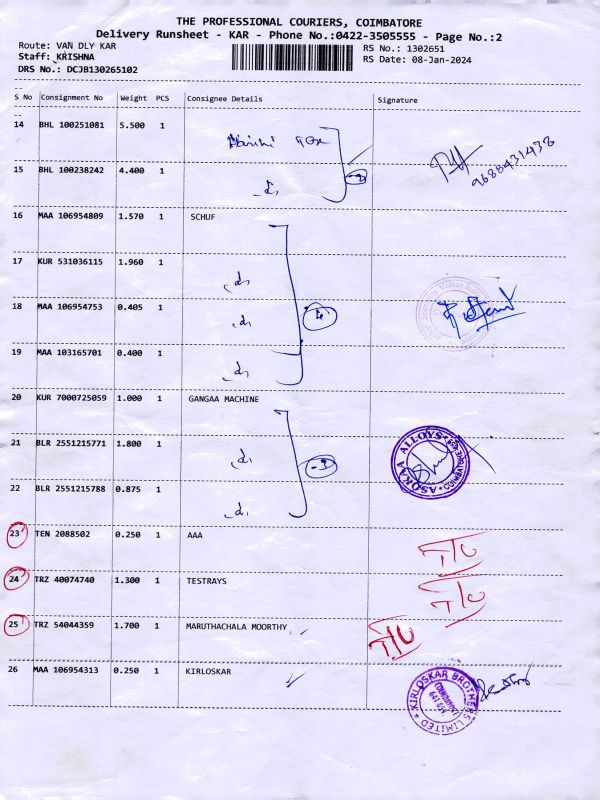 THE PROFESSIONAL COURIERS, COIMBATORE
Delivery Runsheet - KAR - Phone No.:0422-3505555 - Page No.:2
Route: VAN DLY KAR
RS No.: 1302651
Staff: KRISHNA
RS Date: 08-Jan-2024
DRS No.: DCJB130265102
S No Consignment No Weight PCS Consignee Details Signature
14 BHL 100251081 5.500 1
9688431438
15 BHL 100238242 4.400 1
16 MAA 106954809 1.570 1 SCHUF
17 KUR 531036115 1.960 1
18 MAA 106954753 0.405 1 4
19 MAA 103165701 0.400 1
20 KUR 7000725059 1.000 1 GANGAA MACHINE
21 BLR 2551215771 1.800 1 3 ASOKAA ALLOYS
22 BLR 2551215788 0.875 1
23 TEN 2088502 0.250 1 AAA T/U
24 TRZ 40074740 1.300 1 TESTRAYS T/U
25 TRZ 54044359 1.700 1 MARUTHACHALA MOORTHY T/U
26 MAA 106954313 0.250 1 KIRLOSKAR KIRLOSKAR BROTHERS LIMITED